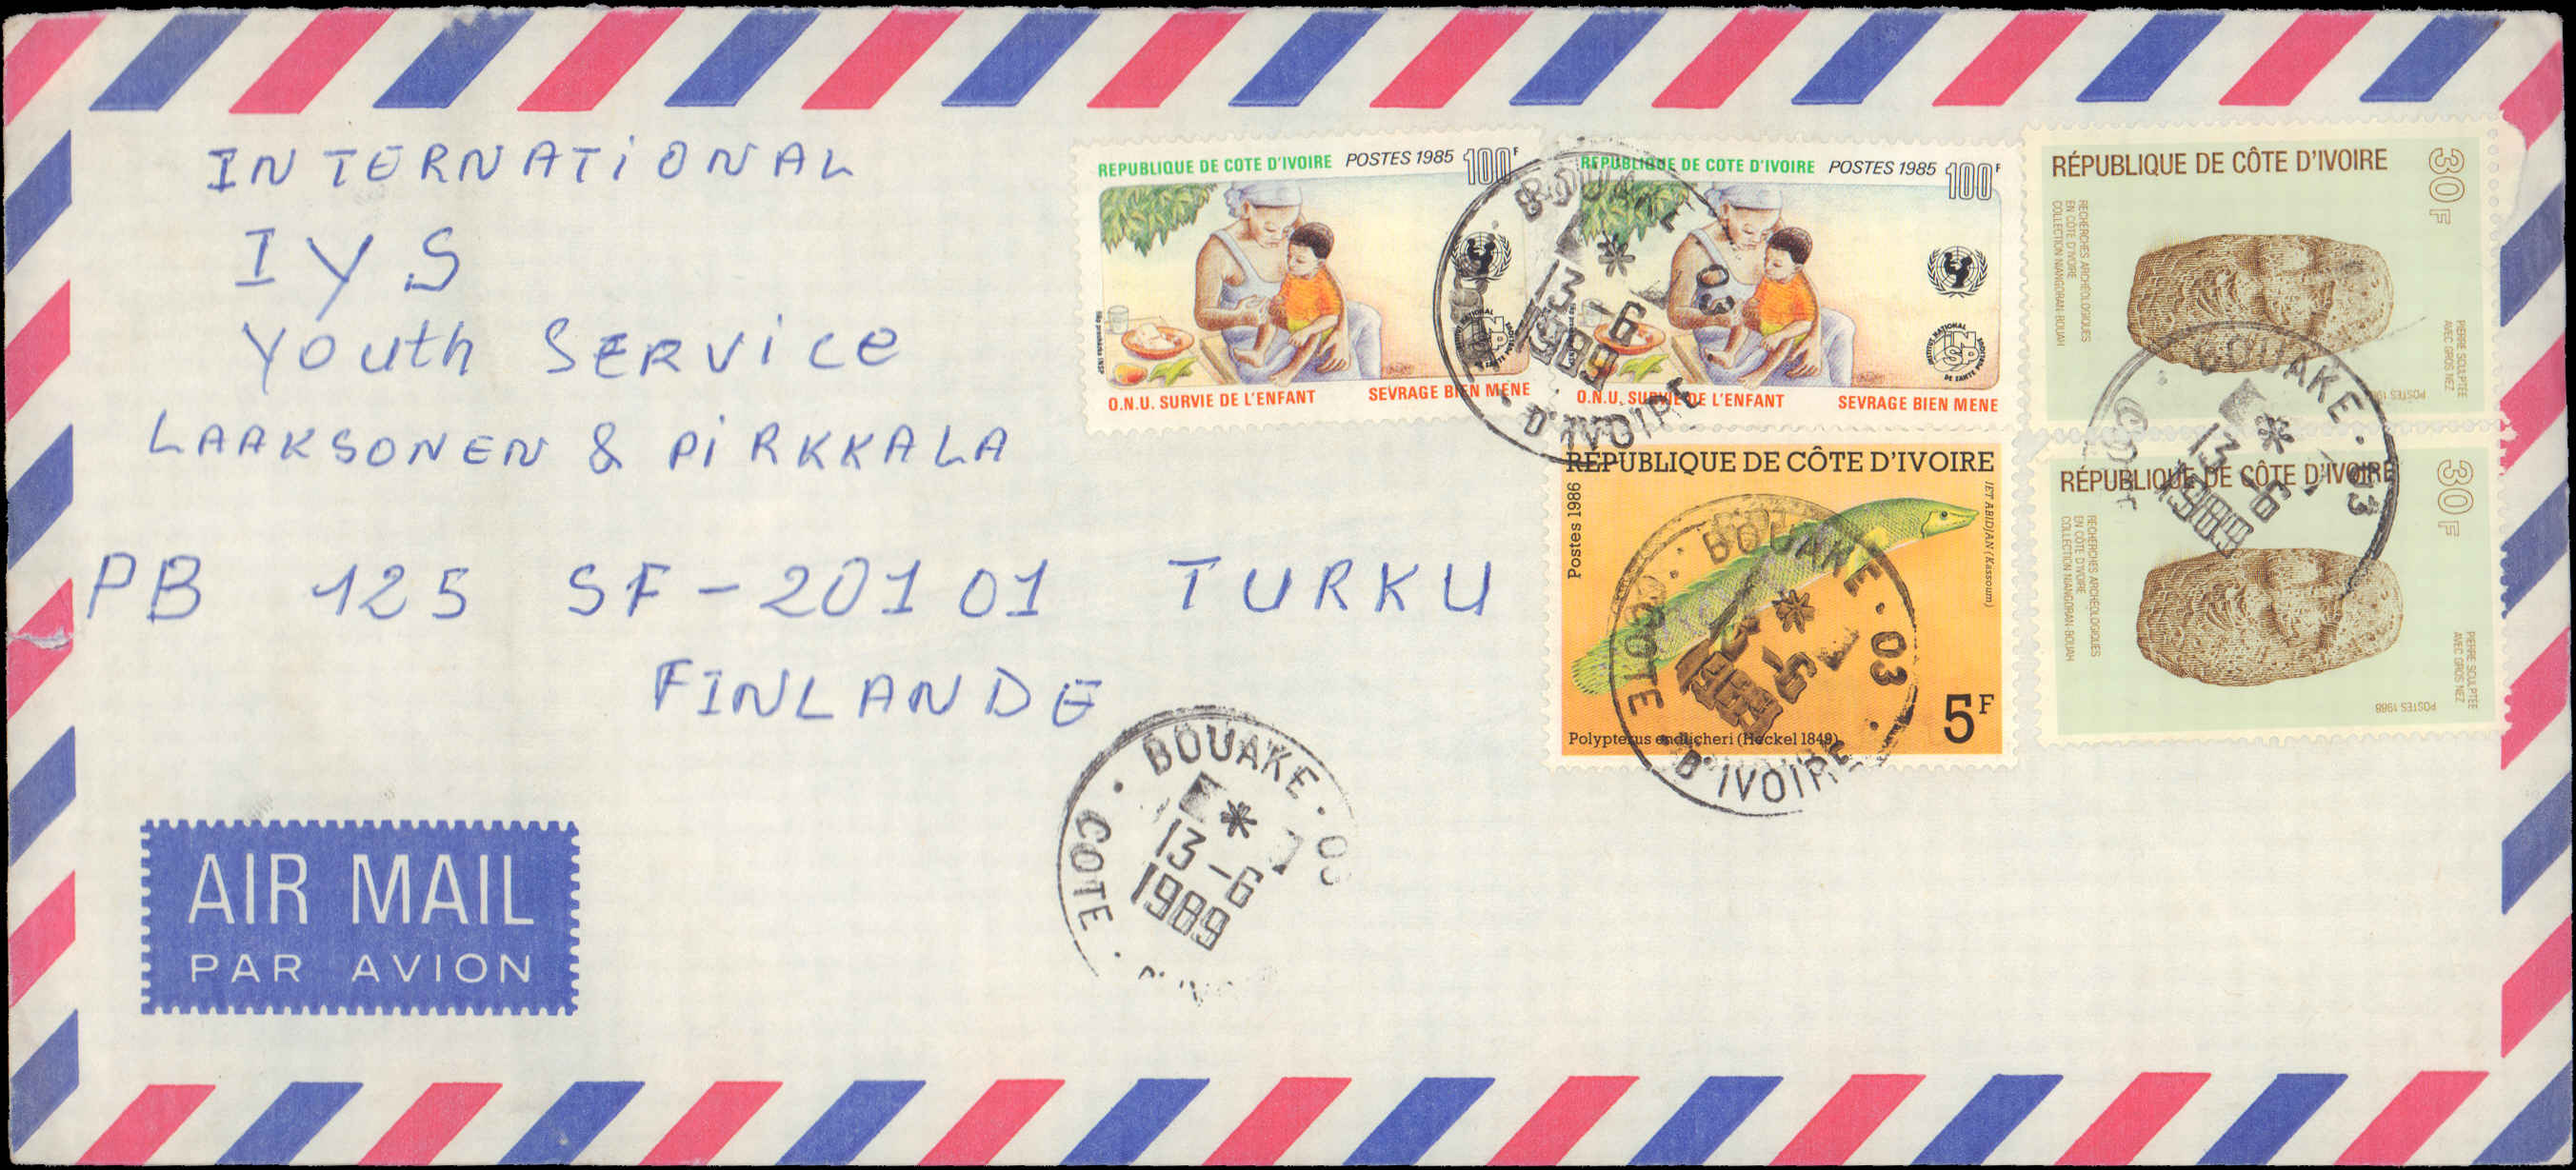 INTERNATIONAL
IYS
Youth SERVice
LAAKSONEN & PiRKKALA
PB 125 SF-20101 TURKU
FINLANDE
AIR MAIL
PAR AVION
REPUBLIQUE DE COTE D'IVOIRE POSTES 1985 100F
O.N.U. SURVIE DE L'ENFANT SEVRAGE BIEN MENE
REPUBLIQUE DE COTE D'IVOIRE POSTES 1985 100F
INSP
O.N.U. SURVIE DE L'ENFANT SEVRAGE BIEN MENE
RÉPUBLIQUE DE CÔTE D'IVOIRE
30F
RECHERCHES ARCHÉOLOGIQUES
EN CÔTE D'IVOIRE
COLLECTION NIANGORAN-BOUAH
PIERRE SCULPTÉE
AVEC GROS NEZ
RÉPUBLIQUE DE CÔTE D'IVOIRE
30F
RECHERCHES ARCHÉOLOGIQUES
EN CÔTE D'IVOIRE
COLLECTION NIANGORAN-BOUAH
PIERRE SCULPTÉE
AVEC GROS NEZ
POSTES 1988
RÉPUBLIQUE DE CÔTE D'IVOIRE
Postes 1986
IET ABIDJAN (Kassoum)
5F
Polypterus endlicheri (Heckel 1849)
BOUAKE 03
13-6
1989
D'IVOIRE
BOUAKE 03
13-6
1989
BOUAKE 03
COTE D'IVOIRE
BOUAKE 03
13-6
1989
COTE